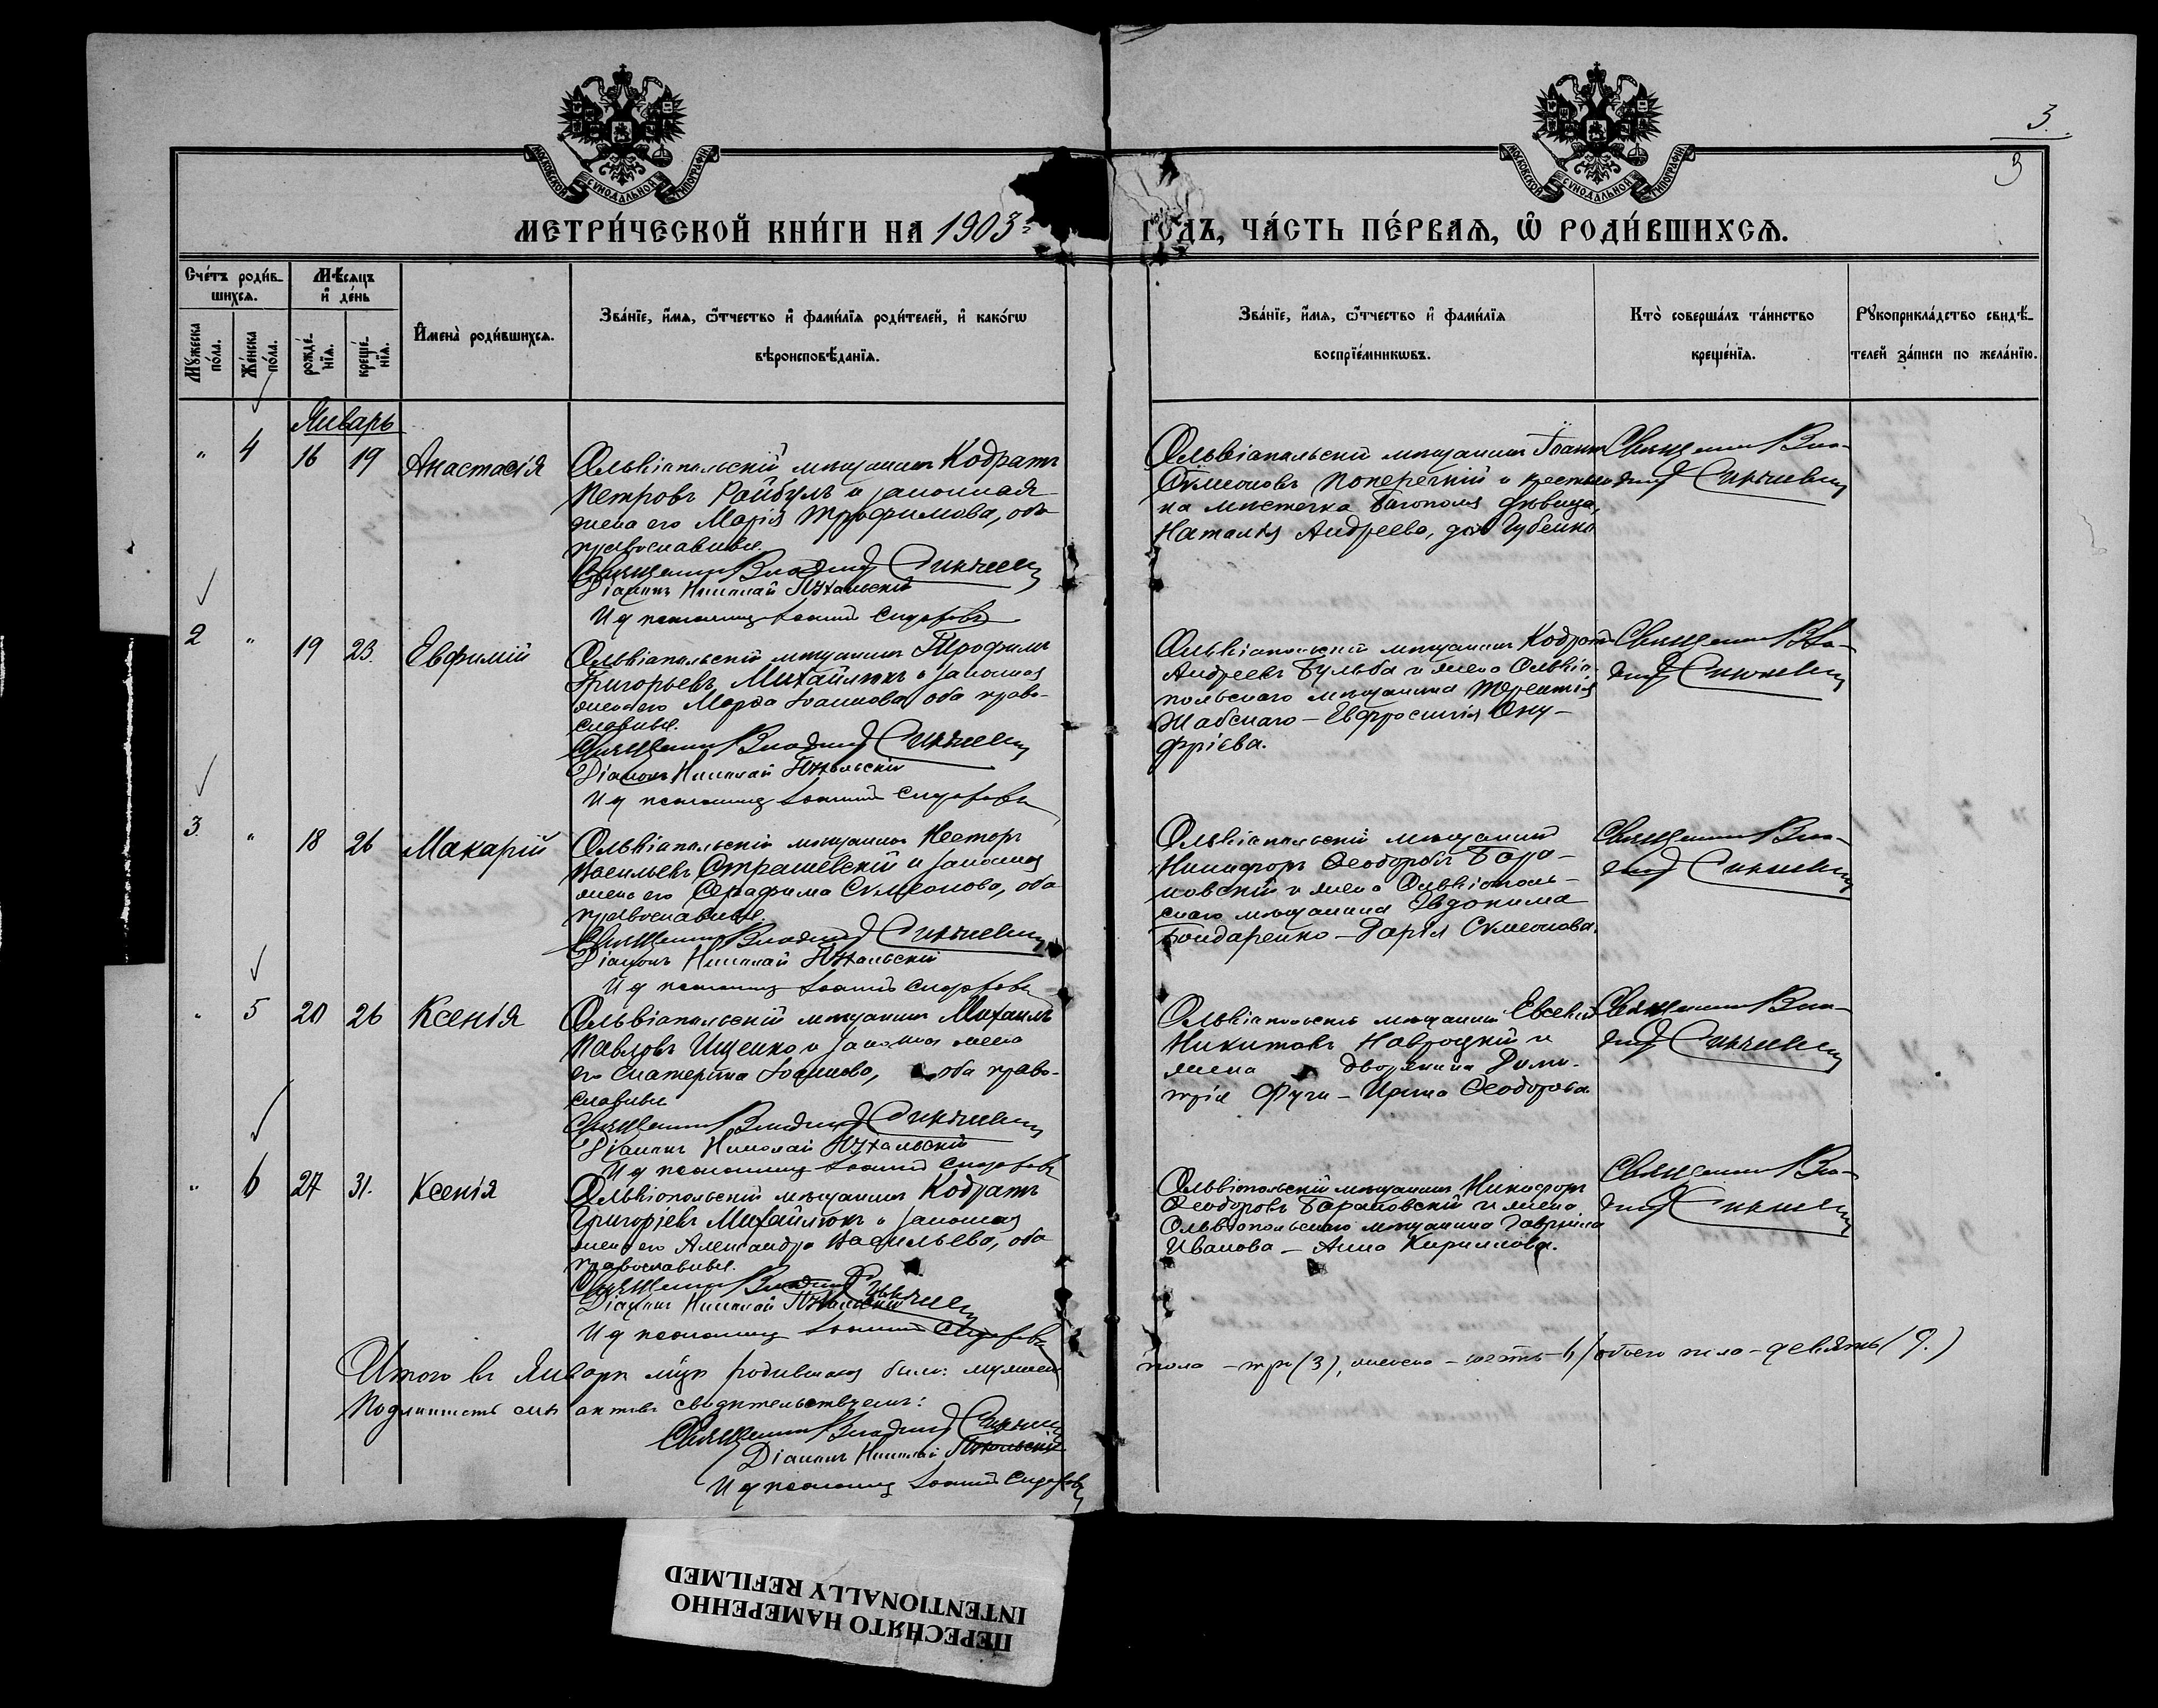 3
3
МОСКОВСКОЙ СѴНОДАЛЬНОЙ ТИПОГРАФІИ
МОСКОВСКОЙ СѴНОДАЛЬНОЙ ТИПОГРАФІИ
МЕТРИ́ЧЕСКОЙ КНИ́ГИ НА 1903 ГОДЪ, ЧА́СТЬ ПЕ́РВАѦ, Ѡ РОДИ́ВШИХСѦ.
Сче́тъ роди́в-
шихсѧ.
Мѣ́сѧцъ
и҆ де́нь
Мꙋ́жеска
по́ла.
Же́нска
по́ла.
рожде́-
нїѧ.
креще́-
нїѧ.
И҆мена̀ роди́вшихсѧ.
Зва́нїе, и҆́мѧ, ѻ҆́тчество и҆ фами́лїѧ роди́телей, и҆ како́гѡ
вѣроисповѣ́данїѧ.
Зва́нїе, и҆́мѧ, ѻ҆́тчество и҆ фами́лїѧ
воспрїе́мникѡвъ.
Кто̀ соверша́лъ та́инство
креще́нїѧ.
Рꙋкоприкла́дство свидѣ́-
телей за́писи по жела́нїю.
Январь
" 4 16 19 Анастасія
Ольвіапольскій мѣщанинъ Кодратъ
Петровъ Райбулъ и законная
жена его Марія Трофимова, оба
православные.
Священникъ Владимір Синькевичъ
Діаконъ Николай
И д псаломщ Іоаннъ Сидоровъ
Ольвіапольскій мѣщанинъ Іоаннъ
Сѵмеоновъ Поперечній и крестьян-
ка мѣстечка Богополя дѣвица
Наталія Андреева, дочь Губенко
Священникъ Вла-
димір Синькевичъ
2 " 19 23. Евфимій
Ольвіапольскій мѣщанинъ Трофимъ
Григорьевъ Михайлюкъ и законная
жена его Марѳа Іоаннова, оба право-
славные.
Священникъ Владимір Синькевичъ
Діаконъ Николай
И д псаломщ Іоаннъ Сидоровъ
Ольвіапольскій мѣщанинъ Кодратъ
Андреевъ Бульба и жена Ольвіо-
польскаго мѣщанина Терентія
Жабскаго - Евфросинія Ону-
фріева.
Священникъ Вла-
димір Синькевичъ
3. " 18 26 Макарій
Ольвіапольскій мѣщанинъ Несторъ
Васильевъ Страшевскій и законная
жена его Серафима Сѵмеонова, оба
православные.
Священникъ Владимір Синькевичъ
Діаконъ Николай
И д псаломщ Іоаннъ Сидоровъ
Ольвіапольскій мѣщанинъ
Никифоръ Ѳеодоровъ Бара-
новскій и жена Ольвіополь-
скаго мѣщанина Евдокима
Бондаренко - Дарія Сѵмеонова.
Священникъ Вла-
димір Синькевичъ
" 5 20 26 Ксенія
Ольвіапольскій мѣщанинъ Михаилъ
Павловъ Ищенко и законная жена
его Екатерина Іоаннова, оба право-
славные
Священникъ Владимір Синькевичъ
Діаконъ Николай
И д псаломщ Іоаннъ Сидоровъ
Ольвіапольскій мѣщанинъ Евсевій
Никитовъ Навроцкій и
жена дворянина Дими-
трія Фуги - Ирина Ѳеодорова
Священникъ Вла-
димір Синькевичъ
" 6 27 31. Ксенія
Ольвіопольскій мѣщанинъ Кодратъ
Григоріевъ Михайлюкъ и законная
жена его Александра Васильева, оба
православные.
Священникъ Владимір Синькевичъ
Діаконъ Николай
И д псаломщ Іоаннъ Сидоровъ
Ольвіопольскій мѣщанинъ Никифоръ
Ѳеодоровъ Барановскій и жена
Ольвіопольскаго мѣщанина Гавріила
Иванова - Анна Кириллова.
Священникъ Вла-
димір Синькевичъ
Итого въ Январѣ мцѣ родившихся было: мужеска пола - три (3), женска - шесть 6/ обоего пола - девять (9.)
Подлинность сихъ актовъ свидѣтельствуемъ:
Священникъ Владимір Синькевичъ
Діаконъ Николай
И д псаломщ Іоаннъ Сидоровъ
ПЕРЕСНЯТО НАМЕРЕННО
INTENTIONALLY REFILMED